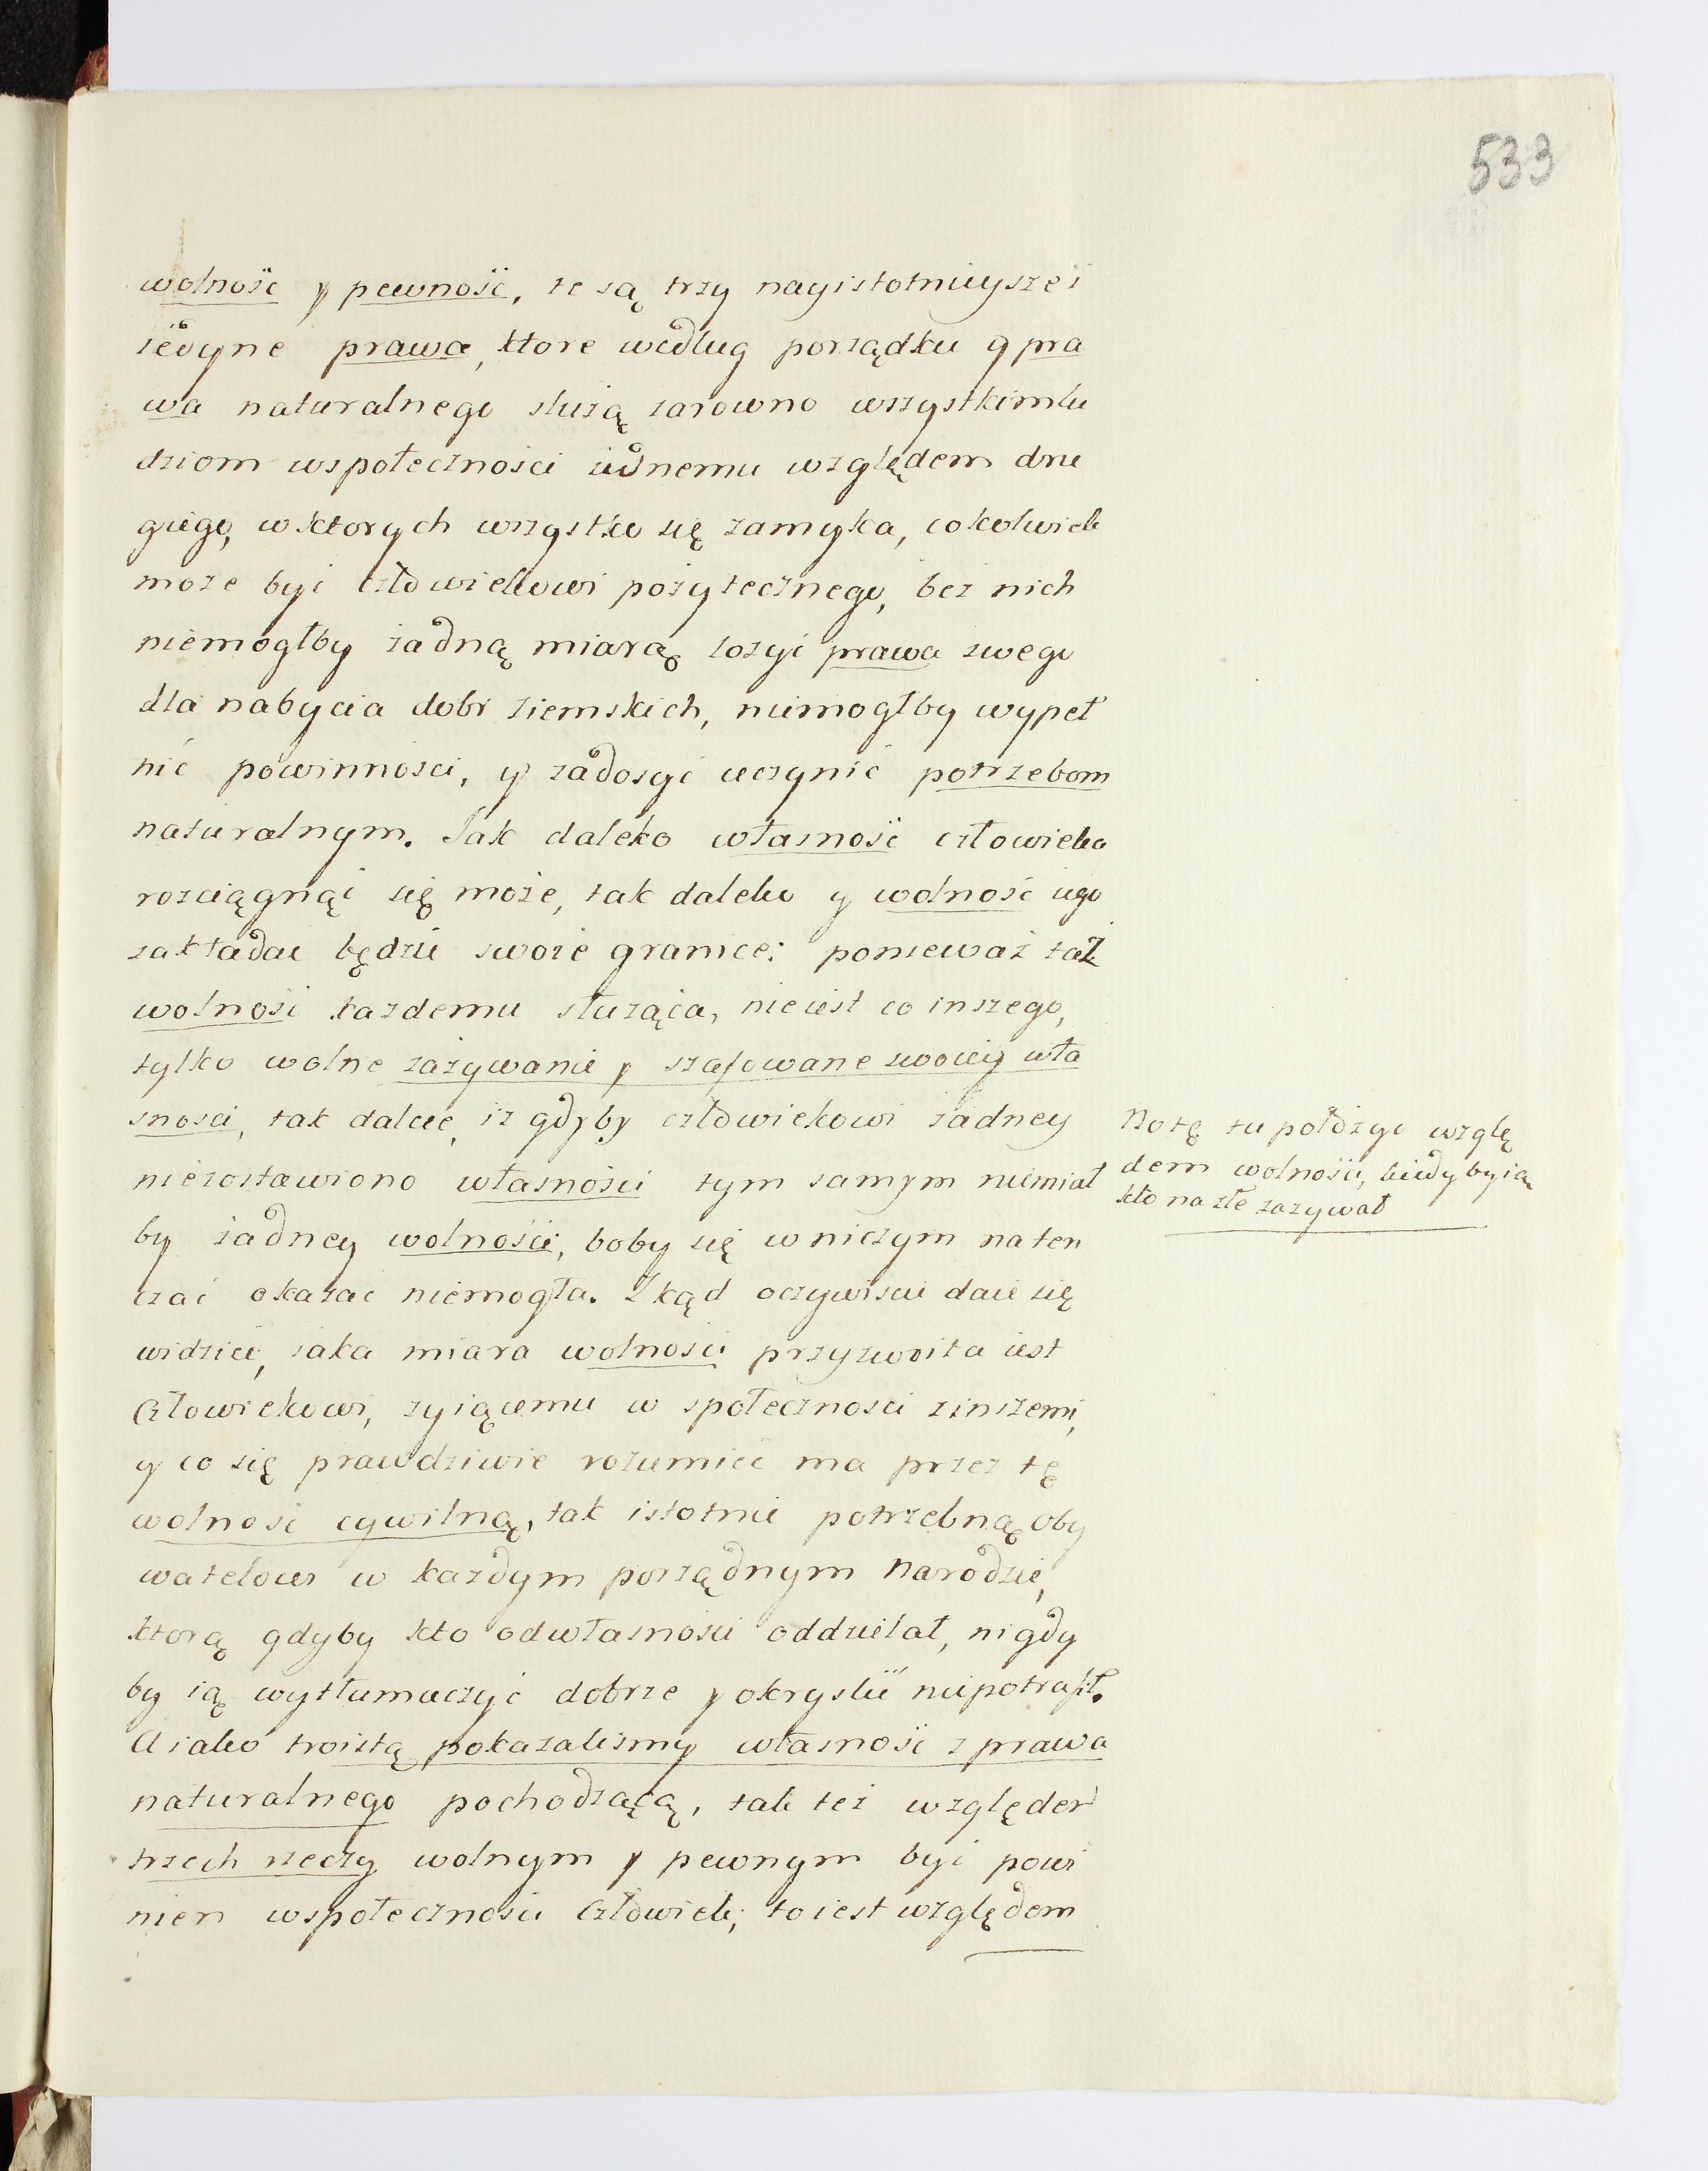 533
wolność y pewność, te są trzy nayistotnieysze i
iedyne prawa, ktore według porządku y pra
wa naturalnego służą zarowno wszystkim lu
dziom wspołeczności iednemu względem dru
giego, w ktorych wszystko się zamyka, cokolwiek
może być człowiekowi pożytecznego, bez nich
niemogłby żadną miarą zożyć prawa swego
dla nabycia dobr ziemskich, niemogłby wypeł
nić powinności, y zadosyć uczynić potrzebom
naturalnym. Jak daleko własność człowieka
rozciągnąć się może, tak daleko y wolność iego
zakładać będzie swoie granice: ponieważ taż
wolność każdemu służąca, nieiest co inszego,
tylko wolne zażywanie y szafowane swoiey wła
sności, tak dalece, iz gdyby człowiekowi żadney
niezostawiono własności tym samym niemiał
by żadney wolności, boby się wniczym naten
czas okazać niemogła. Zkąd oczywiście daie się
widzieć, iaka miara wolności przyzwoita iest
Człowiekowi, żyiącemu w społeczności zinszemi,
y co się prawdziwie rozumieć ma przez tę
wolność cywilną, tak istotnie potrzebną oby
watelowi w każdym porządnym narodzie,
ktorą gdyby kto odwłasności oddzielał, nigdy
by ią wytłumaczyć dobrze y okryslić niepotrafił.
A iako troistą pokazalismy własność z prawa
naturalnego pochodzącą, tak też względem
trzech rzeczy wolnym y pewnym być powi
nien wspołeczności Człowiek; to iest względem
Notę tu położyć wzglę
dem wolności, kiedy by ią
kto na złe zażywał